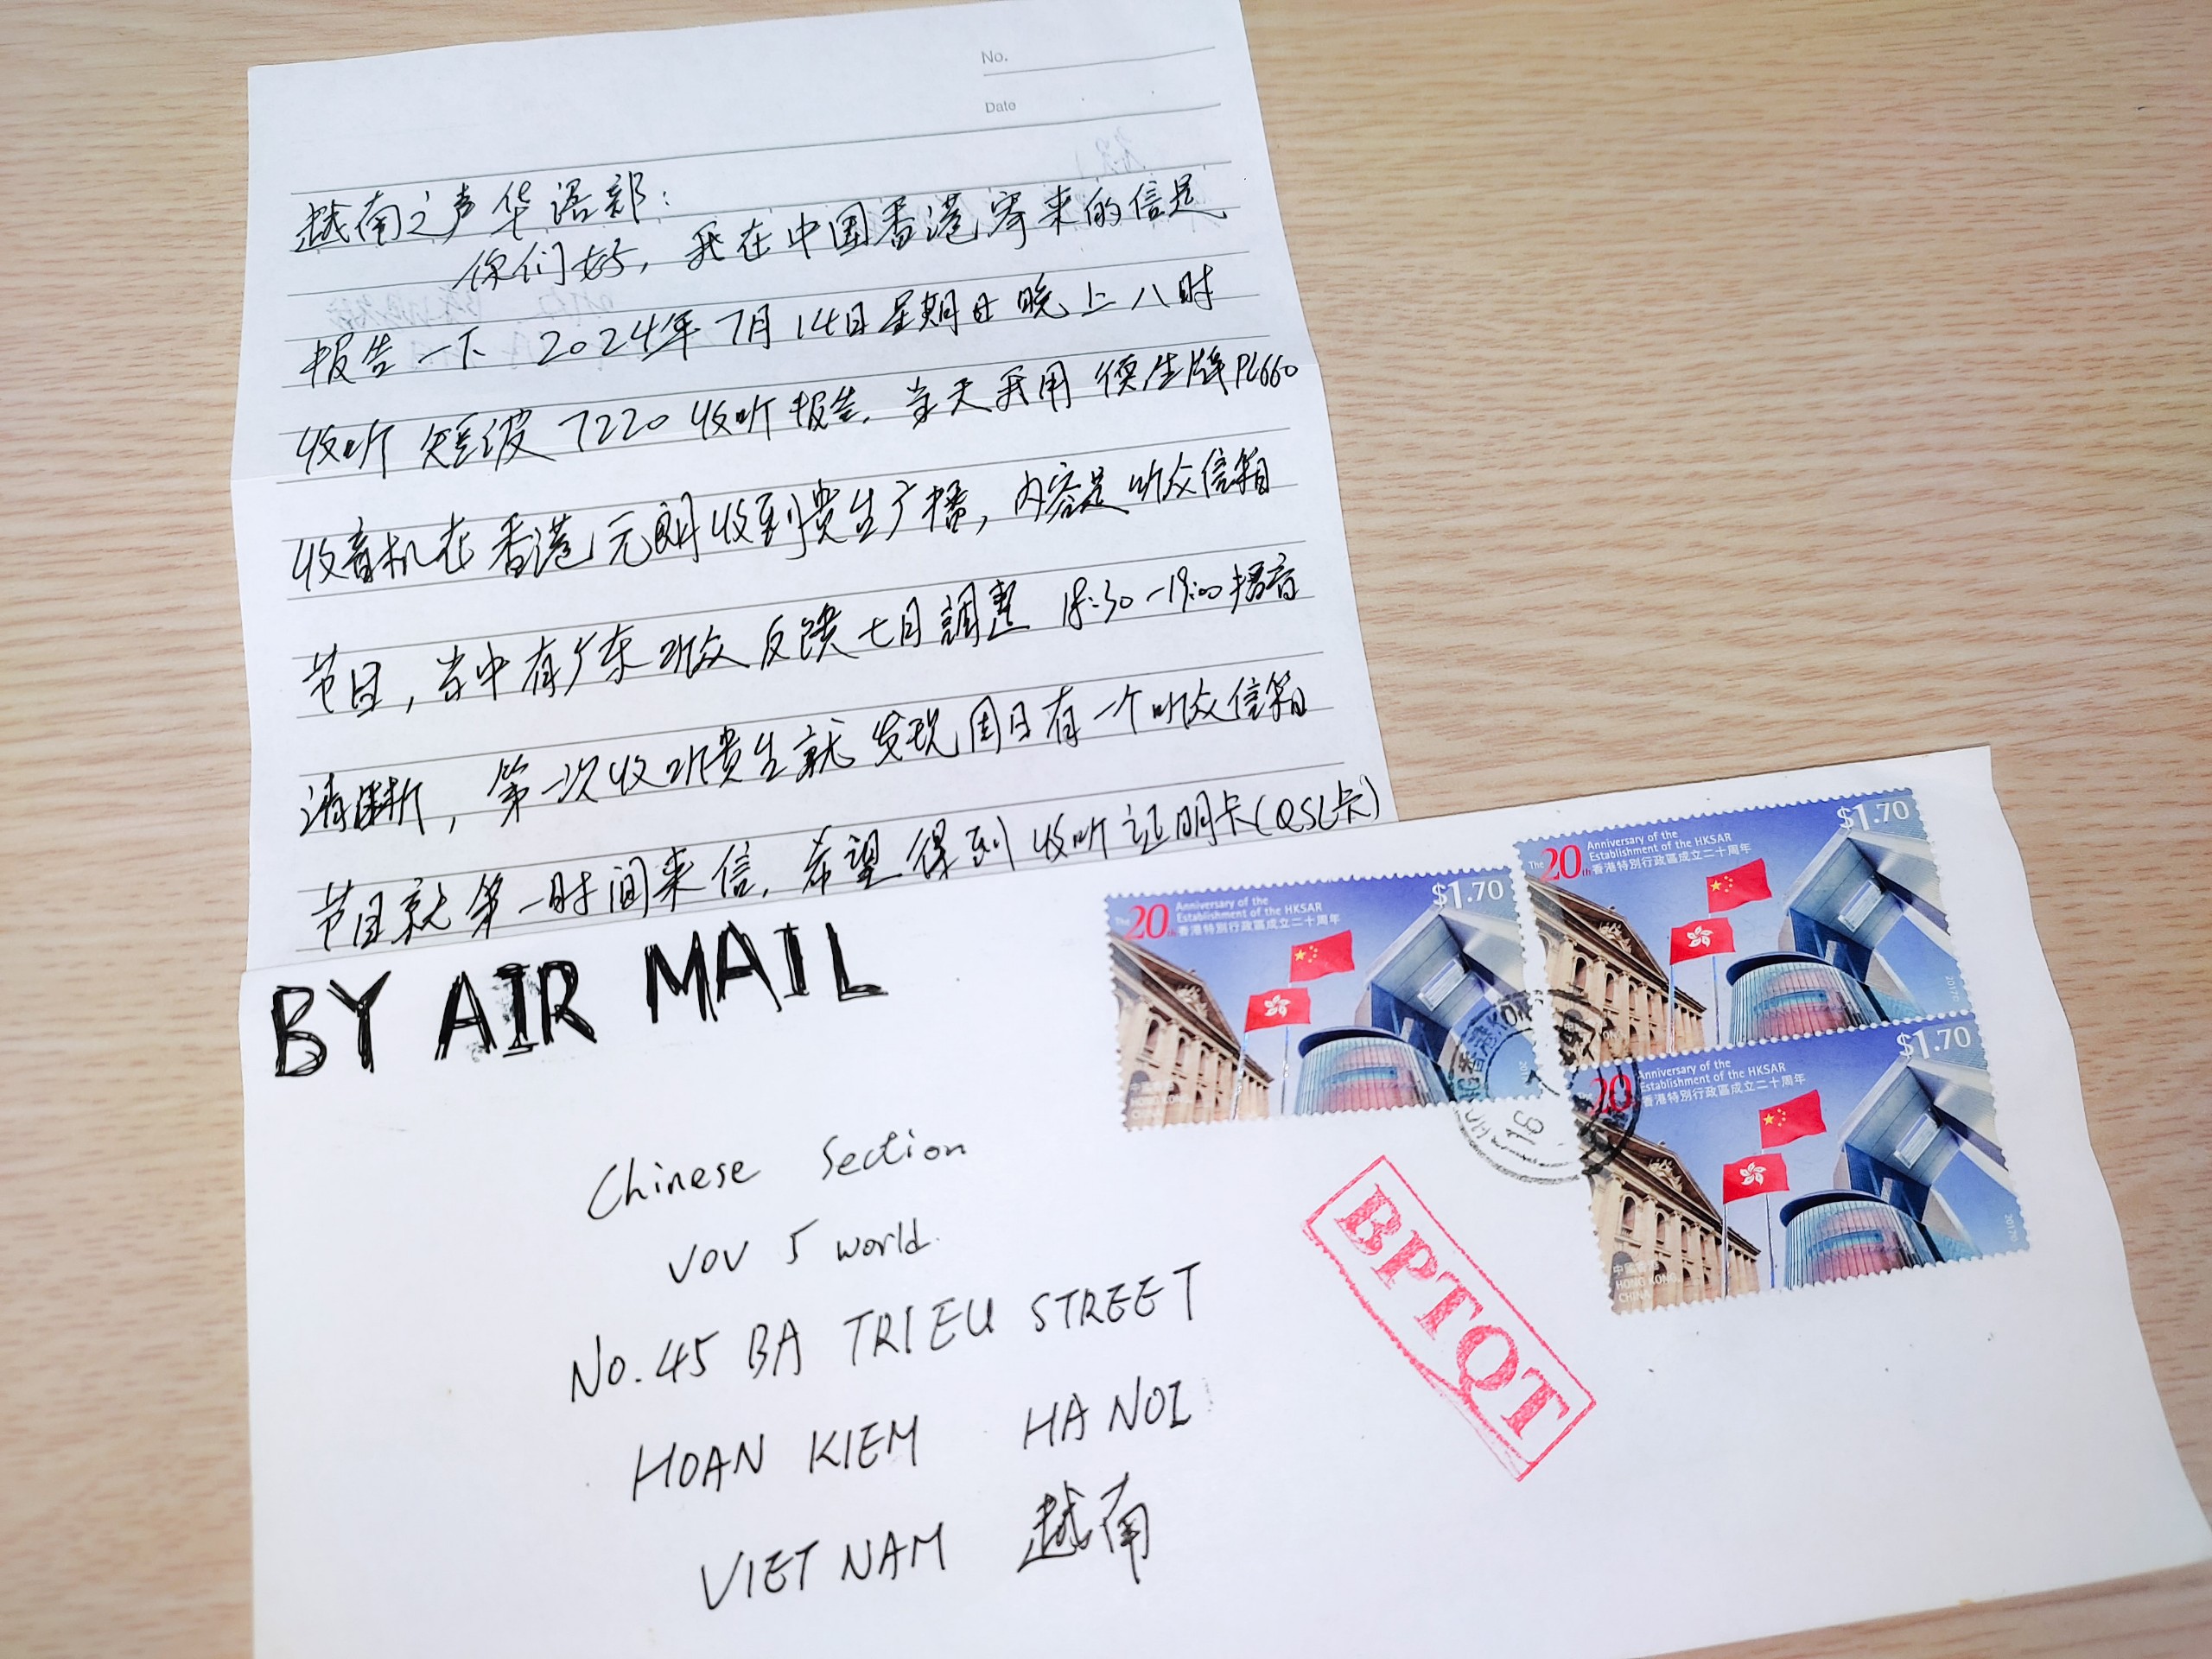 No.
Date
越南之声华语部：
你们好，我在中国香港寄来的信是
报告一下 2024年7月14日星期日晚上八时
收听短波7220收听报告，当天我用德生牌PL660
收音机在香港元朗收到贵台广播，内容是听众信箱
节目，当中有广东听众反馈七月調整 18:30-19:00播音
清晰，第一次收听贵台就发现周日有一个听众信箱
节目就第一时间来信，希望得到收听证明卡(QSL卡)
BY AIR MAIL
Chinese Section
VOV 5 world.
No.45 BA TRIEU STREET
HOAN KIEM HA NOI
VIET NAM 越南
The 20th Anniversary of the
Establishment of the HKSAR
香港特別行政區成立二十周年
$1.70
中國香港
HONG KONG,
CHINA
The 20th Anniversary of the
Establishment of the HKSAR
香港特別行政區成立二十周年
$1.70
2017
The 20th Anniversary of the
Establishment of the HKSAR
香港特別行政區成立二十周年
$1.70
中國香港
HONG KONG,
CHINA
2017
香港 KONG
16
BPTQT